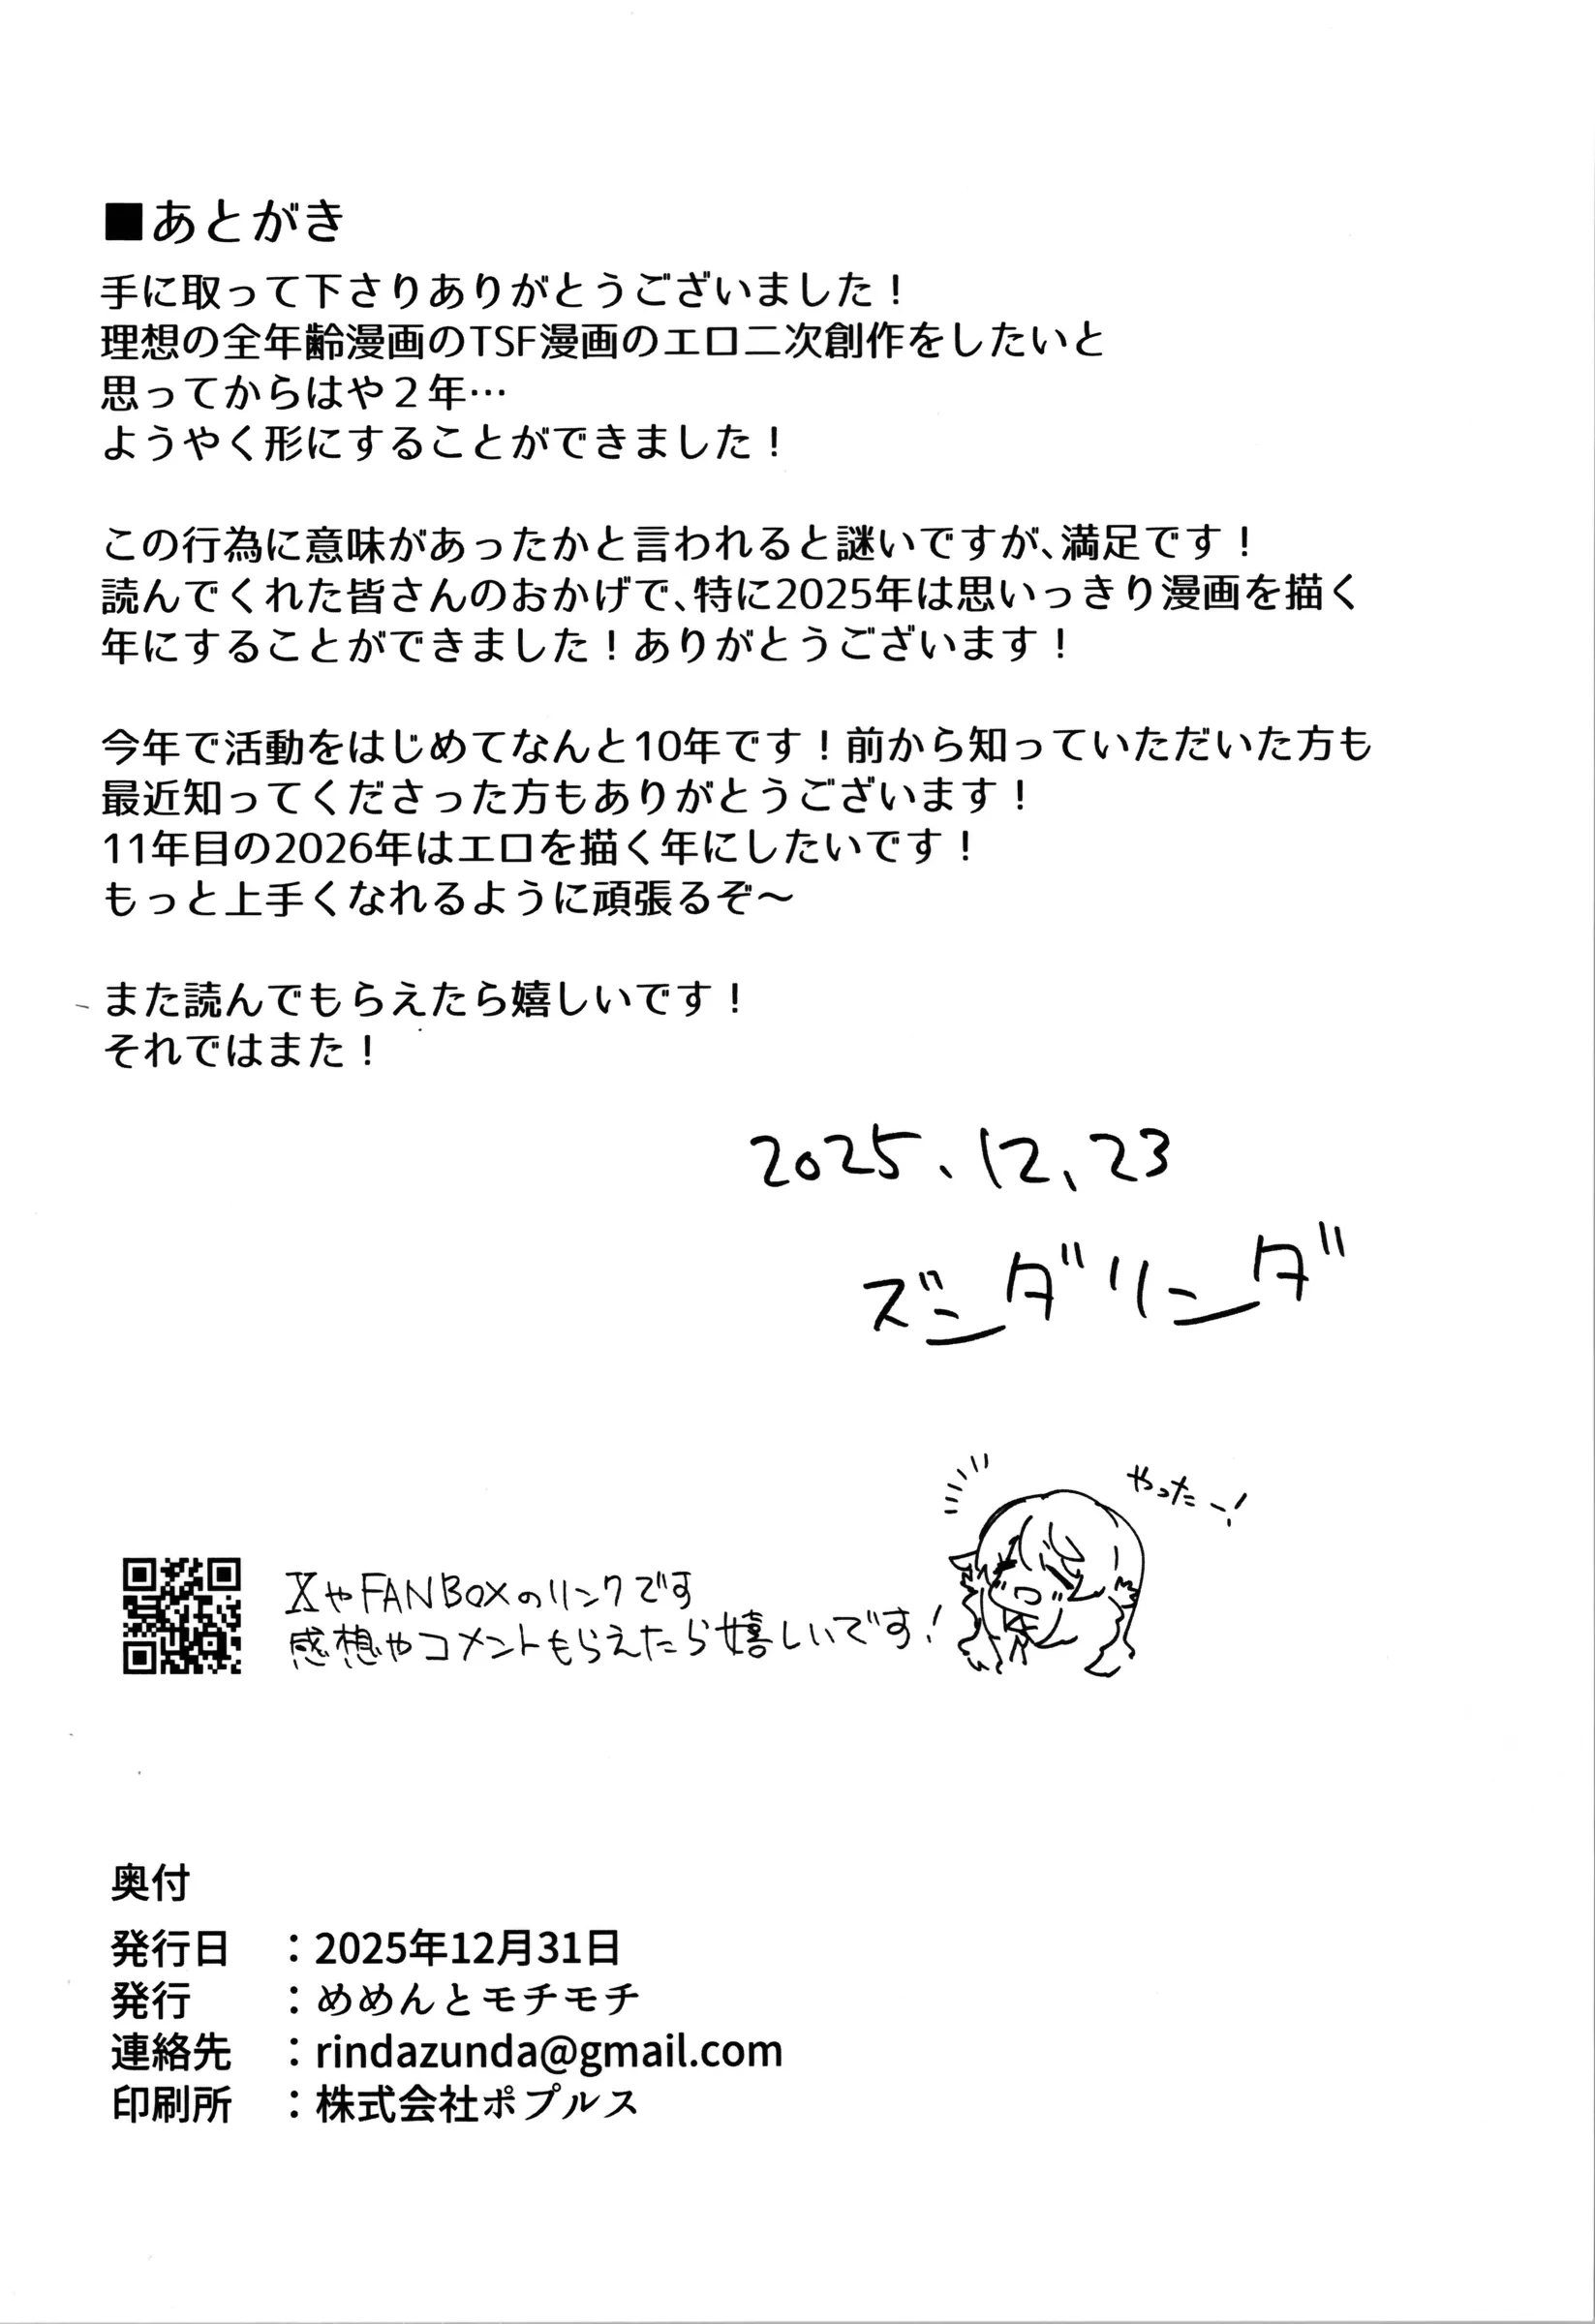 ■あとがき
手に取って下さりありがとうございました！
理想の全年齢漫画のTSF漫画のエロ二次創作をしたいと
思ってからはや２年…
ようやく形にすることができました！
この行為に意味があったかと言われると謎いですが、満足です！
読んでくれた皆さんのおかげで、特に2025年は思いっきり漫画を描く
年にすることができました！ありがとうございます！
今年で活動をはじめてなんと10年です！前から知っていただいた方も
最近知ってくださった方もありがとうございます！
11年目の2026年はエロを描く年にしたいです！
もっと上手くなれるように頑張るぞ～
また読んでもらえたら嬉しいです！
それではまた！
2025、12、23
ズンダリンダ
やったー！
XやFANBOXのリンクです
感想やコメントもらえたら嬉しいです！
奥付
発行日　：2025年12月31日
発行　　：めめんとモチモチ
連絡先　：rindazunda@gmail.com
印刷所　：株式会社ポプルス